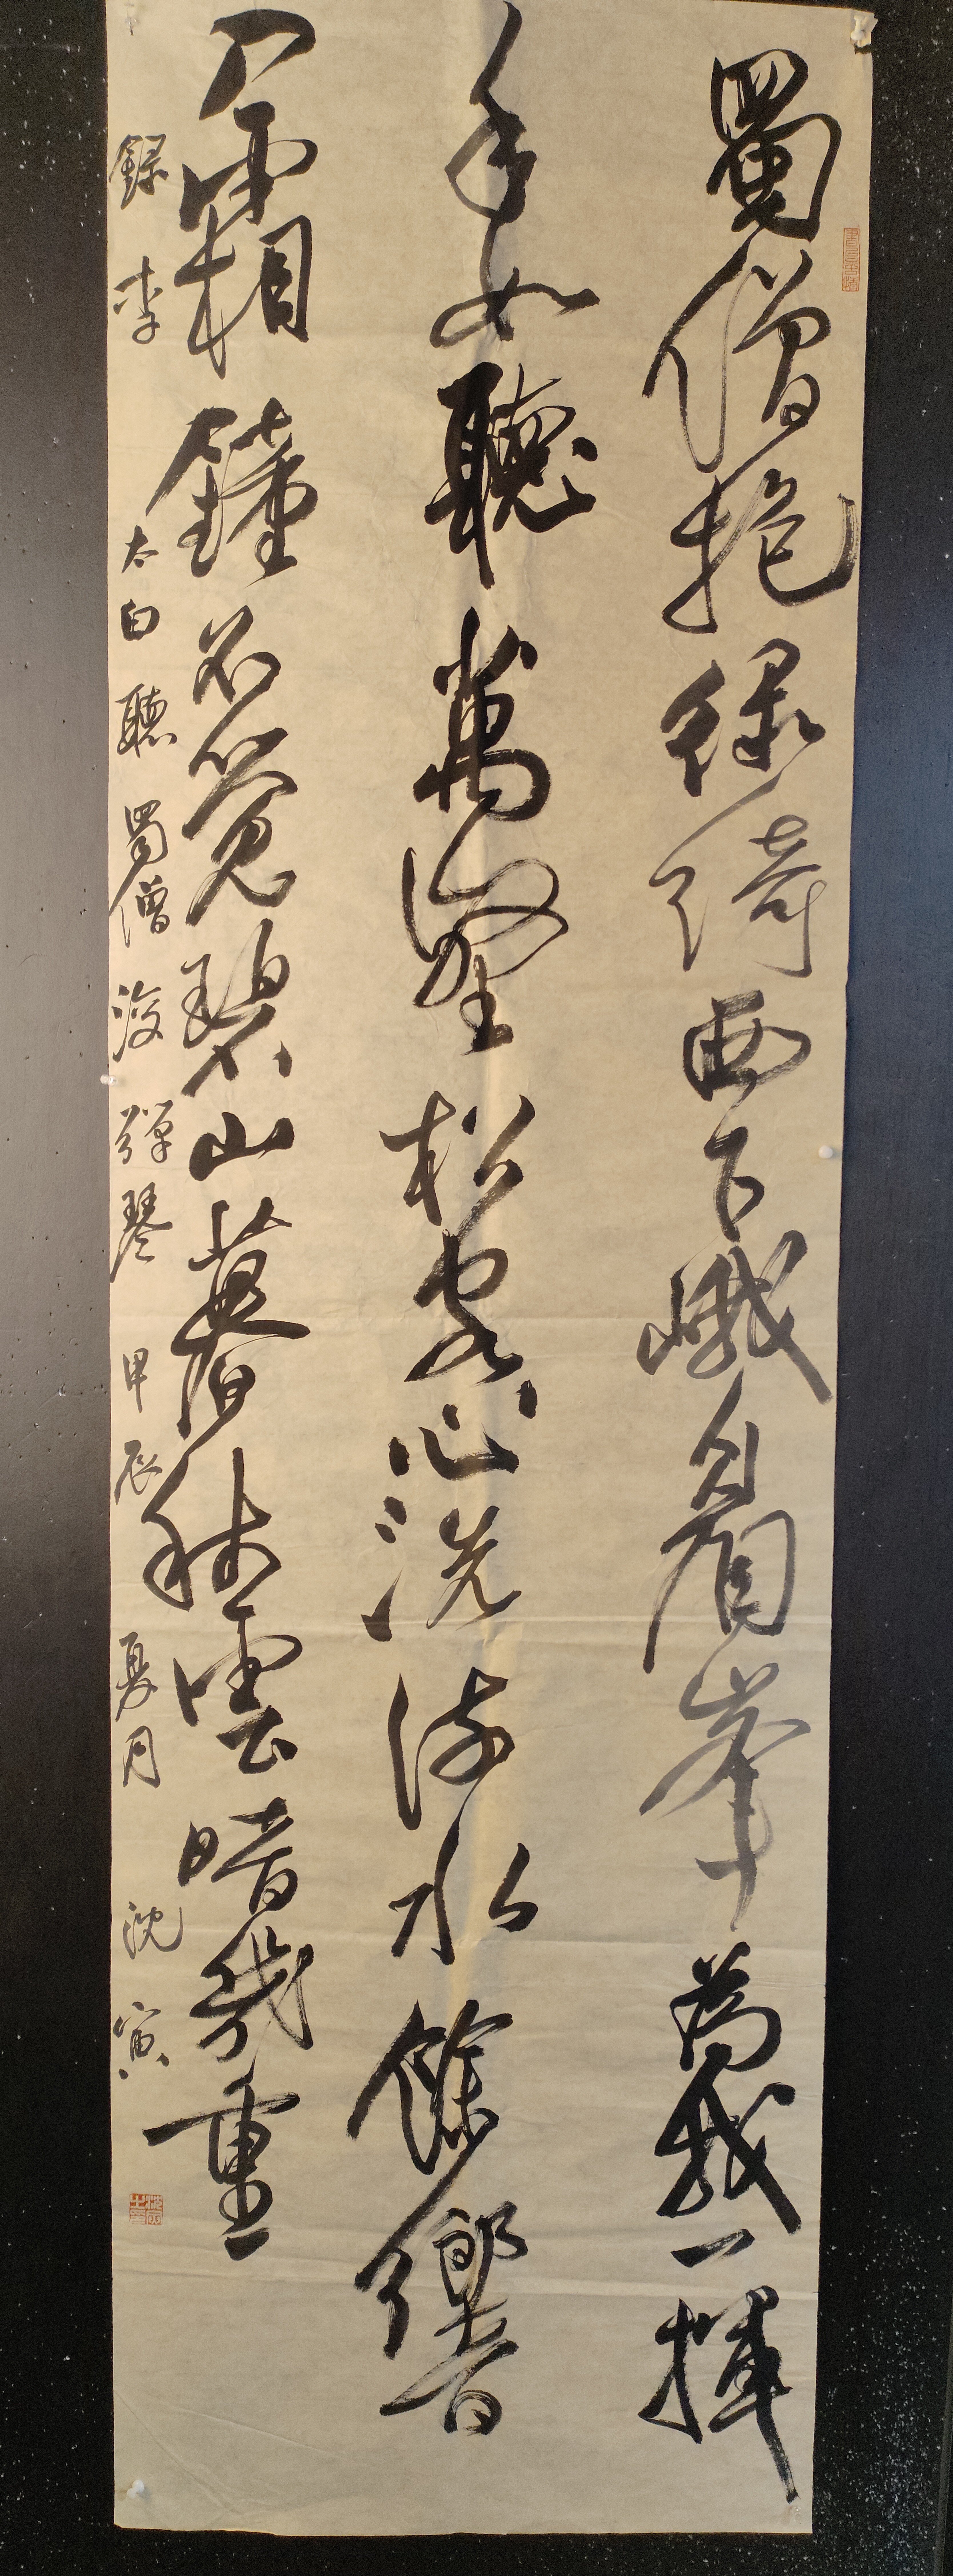 蜀僧抱綠綺西下峨眉峯為我一揮
手如聽萬壑松客心洗流水餘響
入霜鐘不覺碧山暮秋雲暗幾重
錄李太白聽蜀僧浚彈琴甲辰夏月沈寅